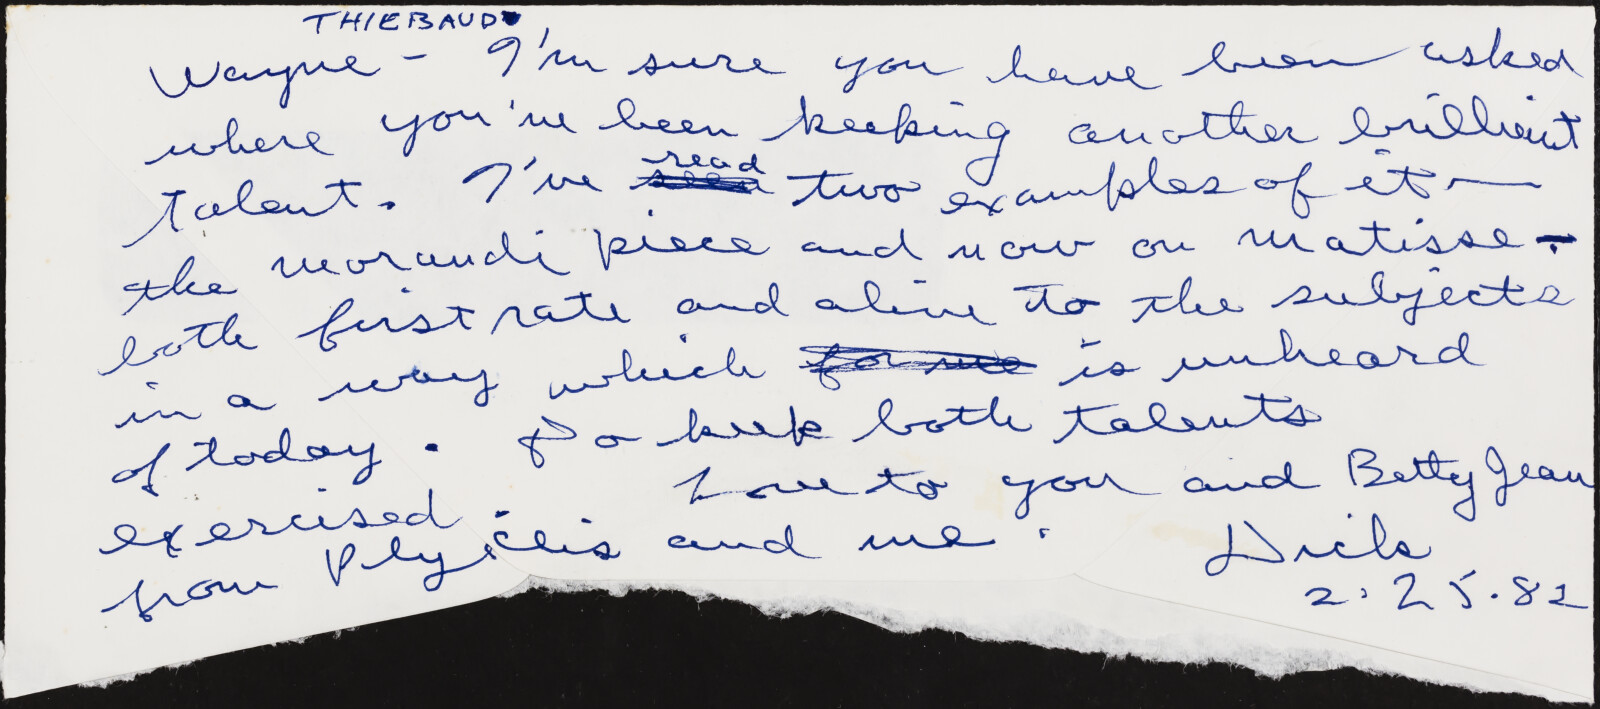 THIEBAUD
Wayne - I'm sure you have been asked
where you've been keeping another brilliant
talent. I've read two examples of it —
the morandi piece and now on matisse -
both first rate and alive to the subjects
in a way which for me is unheard
of today. Do keep both talents
exercised
Love to you and Betty Jean
from Phyllis and me. Dick
2.25.82